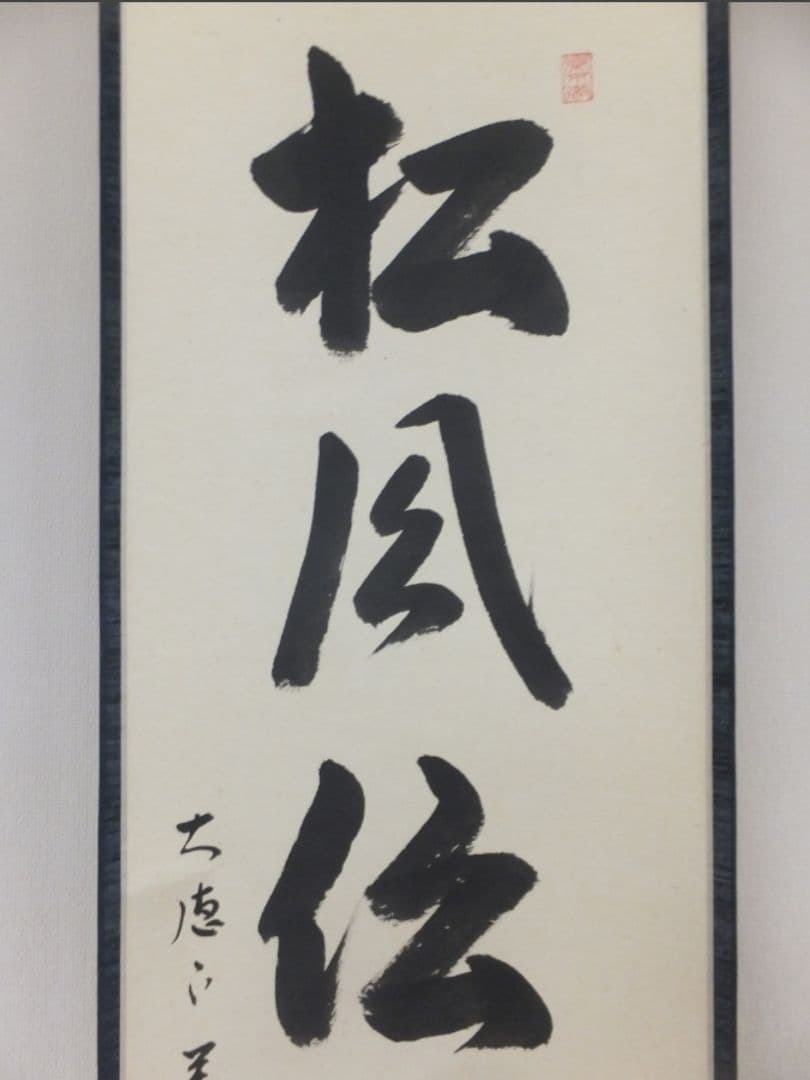 松風伝
大徳